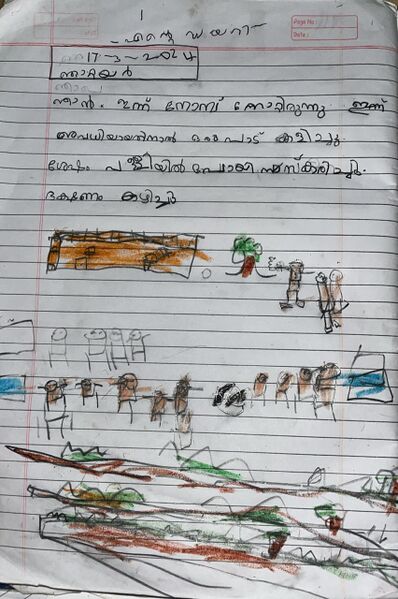 1
Page No:
Date:
എന്റെ ഡയറി
17-3-2024
ഞായർ
ഞാൻ. ഇന്ന് നോമ്പ് നോറ്റിരുന്നു ഇന്ന്
അവധിയായതിനാൽ ഒരുപാട് കളിച്ചു.
ശേഷം പള്ളിയിൽ പോയി നമസ്കരിച്ചു.
ഭക്ഷണം കഴിച്ചു